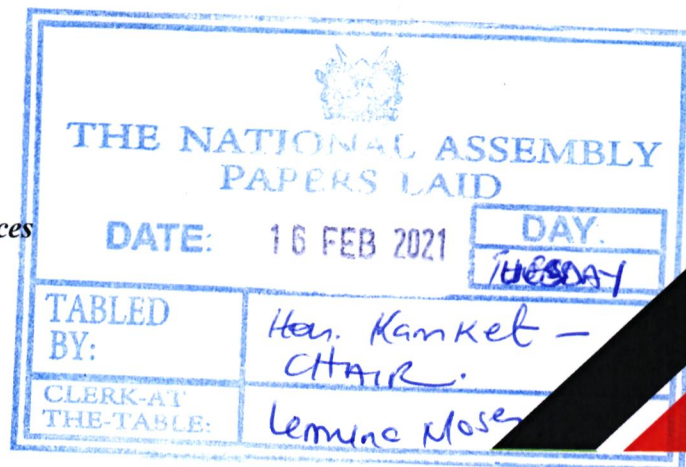 THE NATIONAL ASSEMBLY
PAPERS LAID
ces
DATE: 16 FEB 2021 DAY.
TUESDAY
TABLED BY: Hon. Kamket –
CHAIR.
CLERK-AT THE-TABLE: